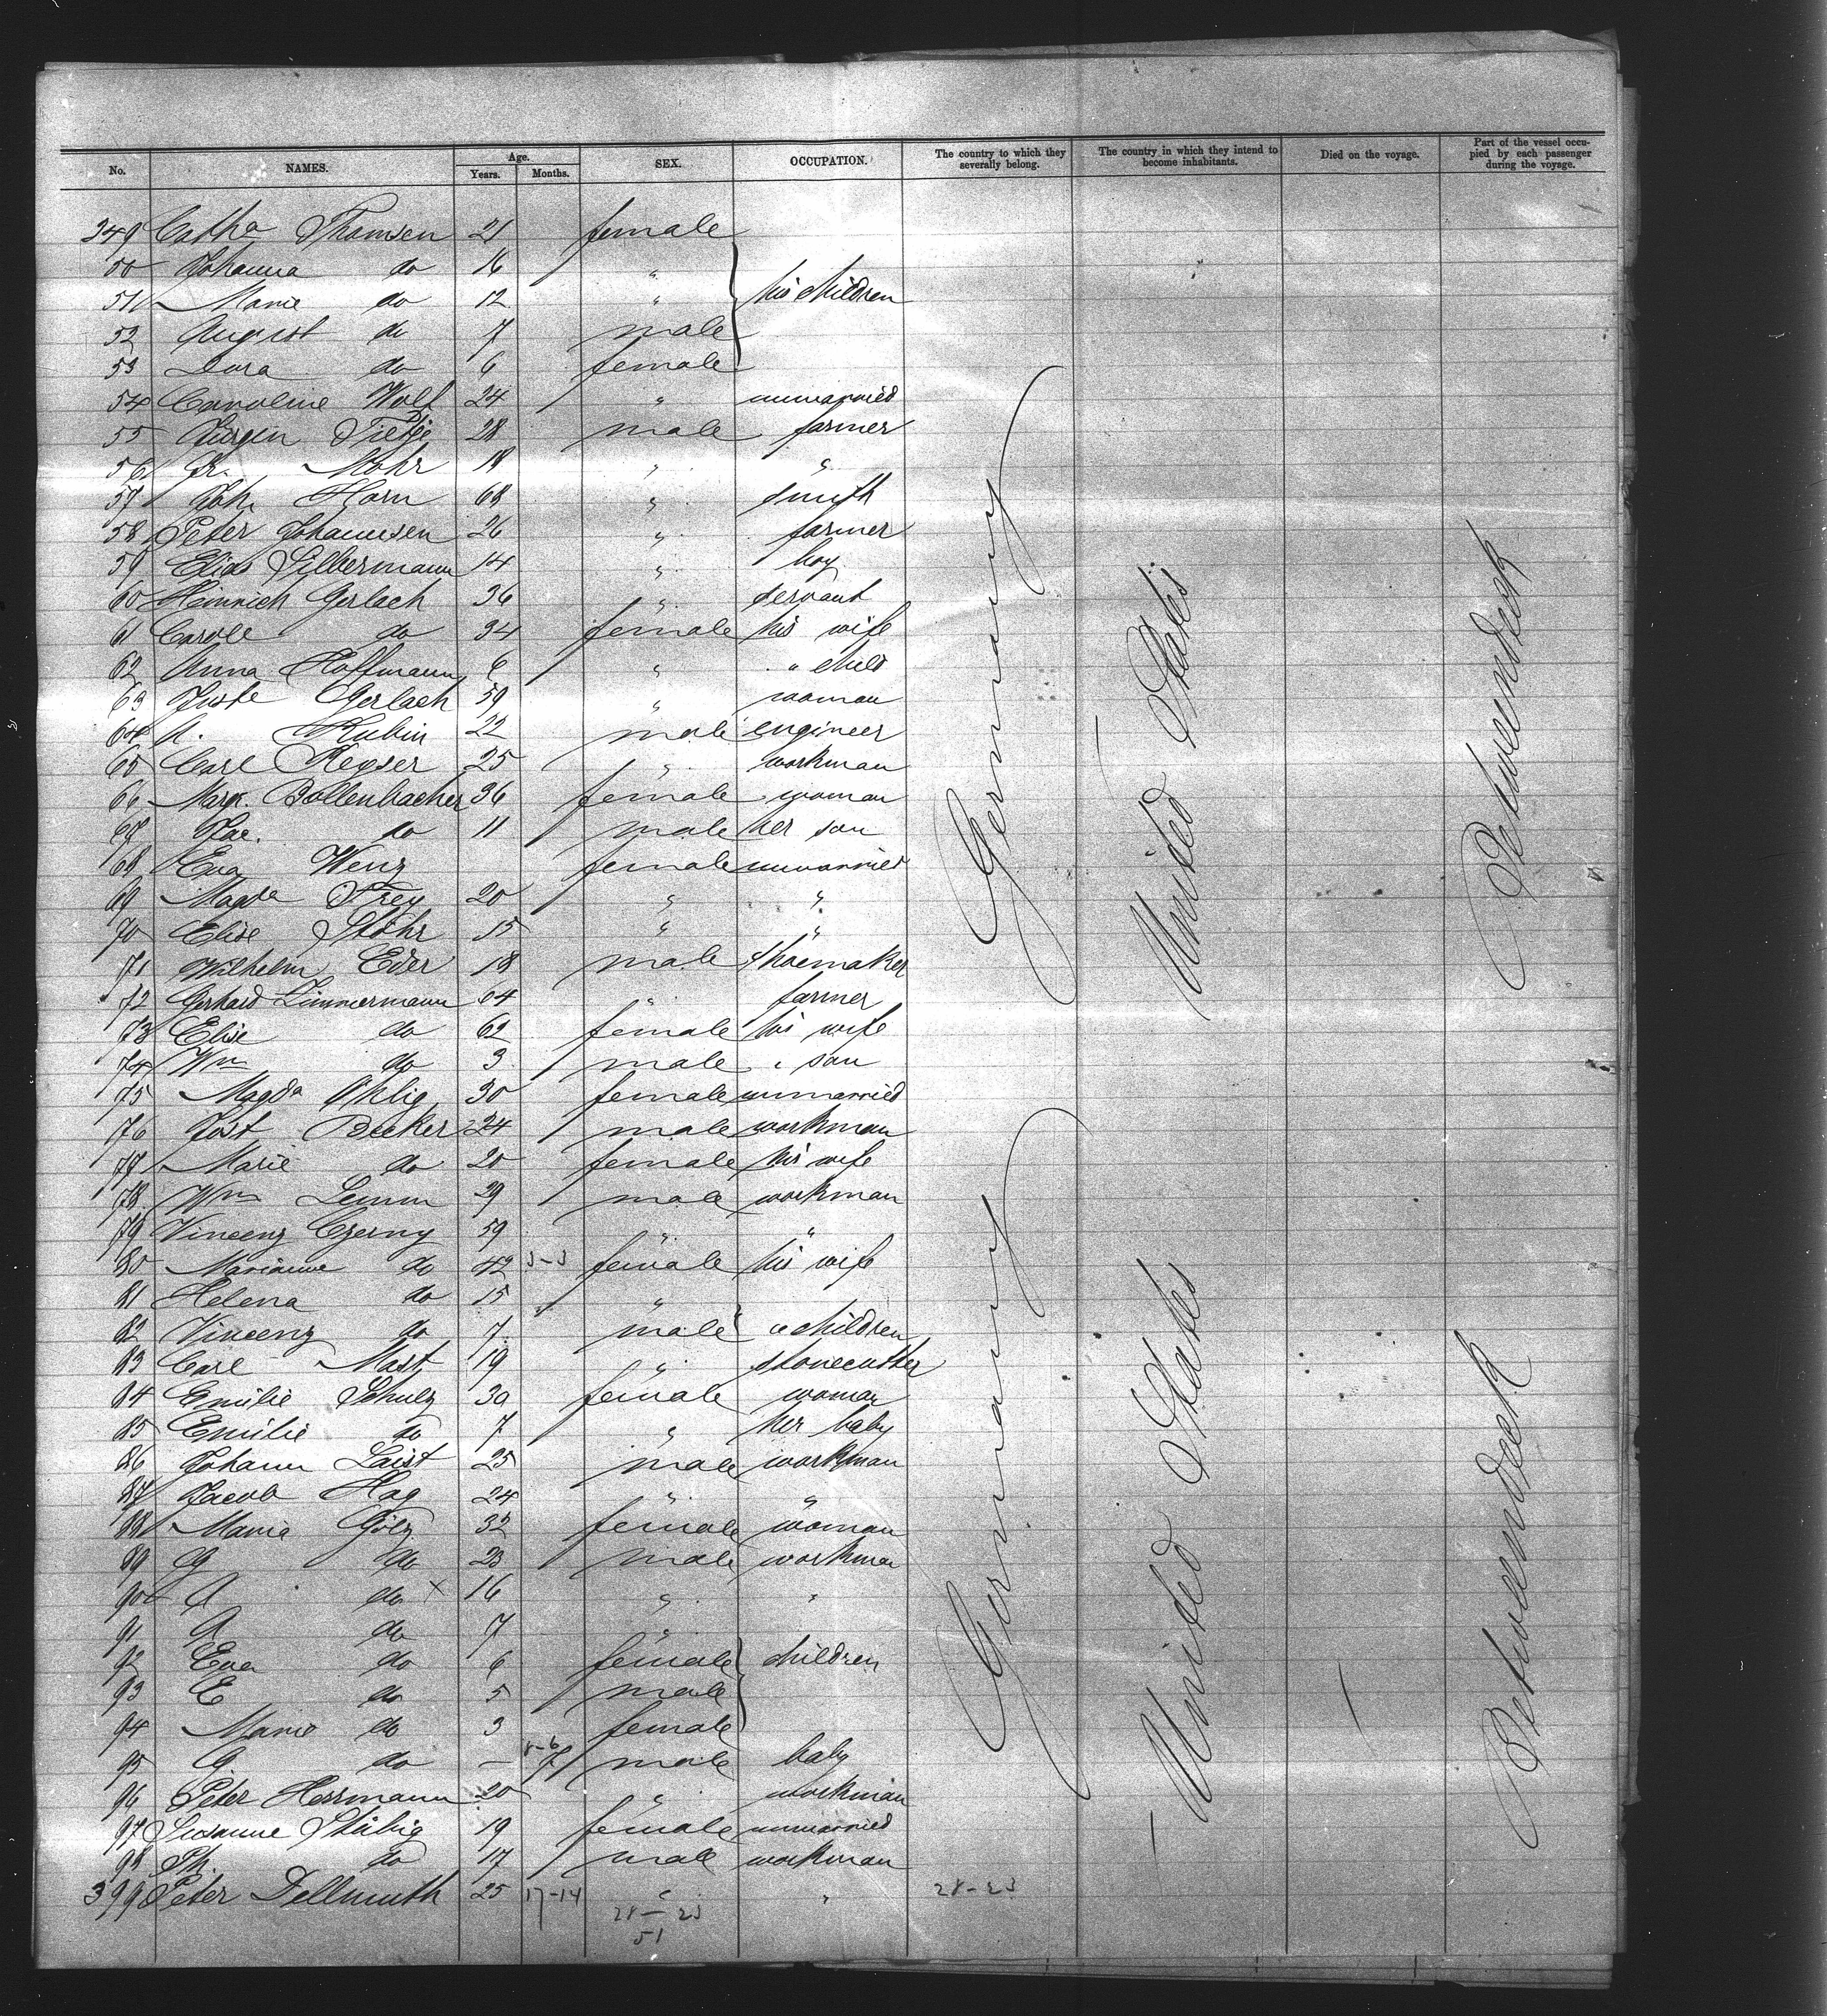 No. NAMES. Age. Years. Months. SEX. OCCUPATION. The country to which they severally belong. The country in which they intend to become inhabitants. Died on the voyage. Part of the vessel occupied by each passenger during the voyage.
349 Catha Thomsen 21 female
50 Johanna do 16 "
51 Marie do 12 " his children
52 August do 7 male
53 Dora do 6 female
54 Caroline Wolf 24 " unmarried
55 Jürgen Tietje 28 male farmer
56 Fr. Mohr 18 " "
57 Joh. Horn 68 " smith
58 Peter Johannsen 26 " farmer
59 Elias Silbermann 14 " boy
60 Heinrich Gerlach 36 " servant
61 Carole do 34 female his wife
62 Anna Hoffmann 6 " " child
63 Juste Gerlach 59 " woman
64 A. Rubin 22 male engineer
65 Carl Keyser 25 " workman
66 Marg. Bollenbacher 36 female woman
67 do 11 male her son
68 Eva Wenz female unmarried
69 Magda Frey 20 " "
70 Elise Stöhr 15 " "
71 Wilhelm Eder 18 male shoemaker
72 Gerhard Zimmermann 64 " farmer
73 Elise do 62 female his wife
74 Wm do 3 male " son
75 Magda Ohlig 30 female unmarried
76 Jost Becker 24 male workman
77 Marie do 20 female his wife
78 Wm Lemm 29 male workman
79 Vincenz Czerny 59 " "
80 Marianne do 42 3-3 female his wife
81 Helena do 15 "
82 Vincenz do 7 male " children
83 Carl Mast 19 " stonecutter
84 Emilie Schulz 30 female woman
85 Emilie do 7 " her baby
86 Johann Laist 25 male workman
87 Jacob Hag 24 " "
88 Maria Gölz 32 female woman
89 G do 23 male workman
90 A do x 16 " "
91 A do 7 "
92 Eva do 6 female children
93 E do 5 male
94 Marie do 3 female
95 G. do — 8-6 7 male baby
96 Peter Herrmann 20 " workman
97 Susanne Stäbig 19 female unmarried
98 Ph. do 17 male workman
399 Peter Dellmuth 25 17-14 " " 28-23
28-23
51
Germany
United States
Betweendeck
Germany
United States
Betweendeck